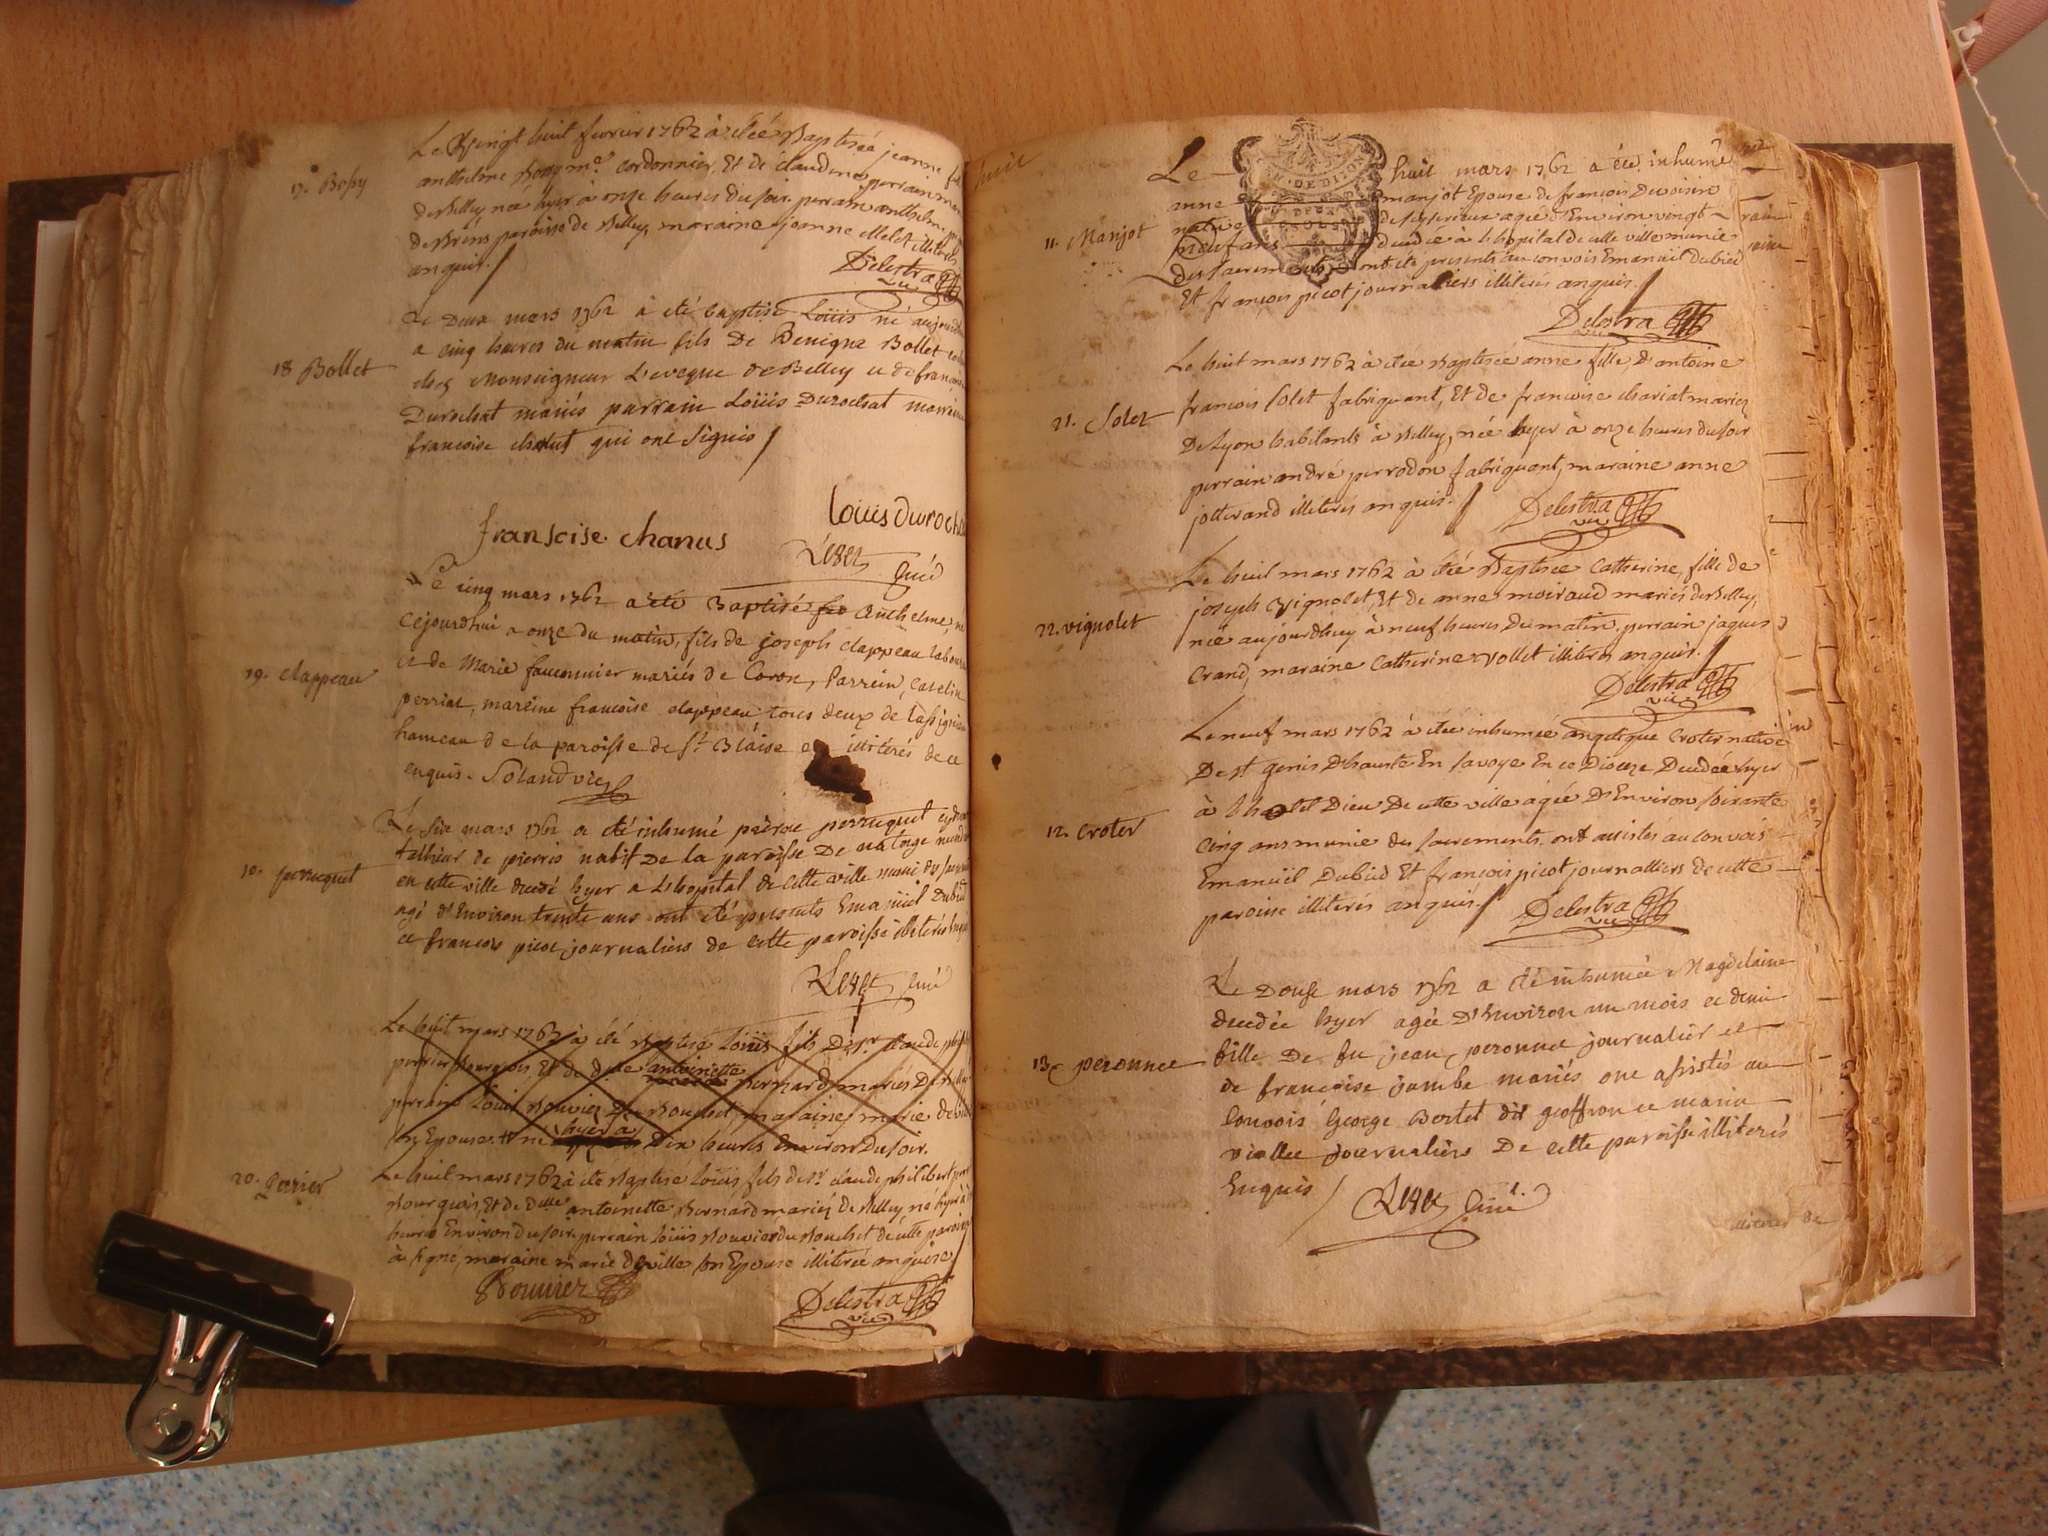 Le vingt huit fevrier 1762 à étée Baptisée jeanne
17. Bossy
anthelme Bossy me. cordonnier, Et de claudine perrain
de Belley née hyer à onze heures du soir, perrain anthelme
de Brens paroisse de Belley, maraine jeanne Melet illiterés
anquis./
Delestra
vic
Le Deux mars 1762 a été baptisé Loüis né aujourd
a cinq heures du matin fils De Benigne Bollet
18 Bollet
chez Monseigneur L'eveque de Belley et de francoise
Durochat mariés parrain Loüis Durochat marraine
francoise chanut qui ont signés /
Loüis durocha
franscise chanus
Curé
Le cinq mars 1762 a été Baptisé fils Anthelme, né
cejourdhui a onze du matin, fils de joseph clappeau
19. clappeau
et de Marie fauconnier mariés de Coron, Parrein,
perriat, mareine francoise clappeau tous deux de
hameau de la paroisse de St. Blaise et illitérés de ce
enquis. Soland vic
Le Six mars 1762 a été inhumé pierre perruquet
tallieur de pierris natif De la paroisse De
10. perruquet
en cette ville decedé hyer a L'hopital de Cette ville muni des
agé d'Environ trente ans ont été presents Emanüel Dubied
et francois picot journaliers de cette paroisse illiterés
Curé
Le huit mars 1762 à été Baptisé Loüis fils De sr. claude
perrier Bourgeois, Et de dlle antoinette Bernard mariés De Belley
perrain Loüis Bouvier Du Bouchet, maraine marie deville
son Epouse # né hyer a Dix heures Environ Du soir.
20. perrier
Le huit mars 1762 à été Baptisé Loüis fils de sr. claude philibert
Bourgeois, Et de Dlle antoinette Bernard mariez de Belley né hyer à
heures Environ Du soir, perrain Loüis Bouvier du Bouchet de cette paroisse
à signé, maraine marie deville son Epouse illiterée anquise
Bouvier
Delestra
vic
huit
Le huit mars 1762 a éte inhumé
anne manjot Epouse de françois
11. Manjot
native agée d'Environ vingt
neuf ans decedée à l'hopital de cette ville munie
des sacrements, ont été presents au convois Emanüel Dubied
Et françois picot journaliers illiterés anquis./
Delestra
vic
Le huit mars 1762 à étée Baptisée anne fille d'antoine
21. Solet
francois Solet fabriquant, Et de francoise chariat mariez
De Lyon habitants à Belley, née hyer à onze heures du soir
perrain andré perrodon fabriquant, maraine anne
jotterand illiterés anquis./
Delestra
vic
Le huit mars 1762 à étée Baptisée Catherine, fille de
22. vignolet
joseph vignolet, Et de anne moiraud mariés de Belley,
née aujourdhuy à neuf heures Du matin, perrain jaques
Grand, maraine Catherine vollet illiterés anquis./
Delestra
vic
Le neuf mars 1762 à étée inhumée angelique Croter native
De st. genis D'hauste En Savoye En ce Dioceze Decedée hyer
12. Croter
à L'hotel Dieu De cette ville agée D'Environ soixante
cinq ans munie des sacrements, ont assistés au convois
Emanüel Dubied Et françois picot journaliers de cette
paroisse illiterés anquis./
Delestra
vic
Le Douse mars 1762 a été inhumée Magdelaine
decedée hyer agée D'Environ un mois et demi
13. peronnet
fille De fu jean peronnet journalier et
de francoise jambe mariés ont assistés au
Convois George Bertet dit geoffron et
journaliers De cette paroisse illiterés
Enquis /
Curé